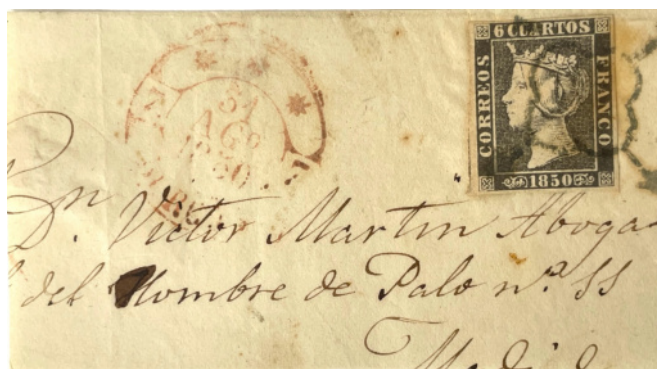 6 CUARTOS
CORREOS
FRANCO
1850
31
AGº
1850
Dn. Victor Martin Aboga
del Hombre de Palo nº. 55
Madrid